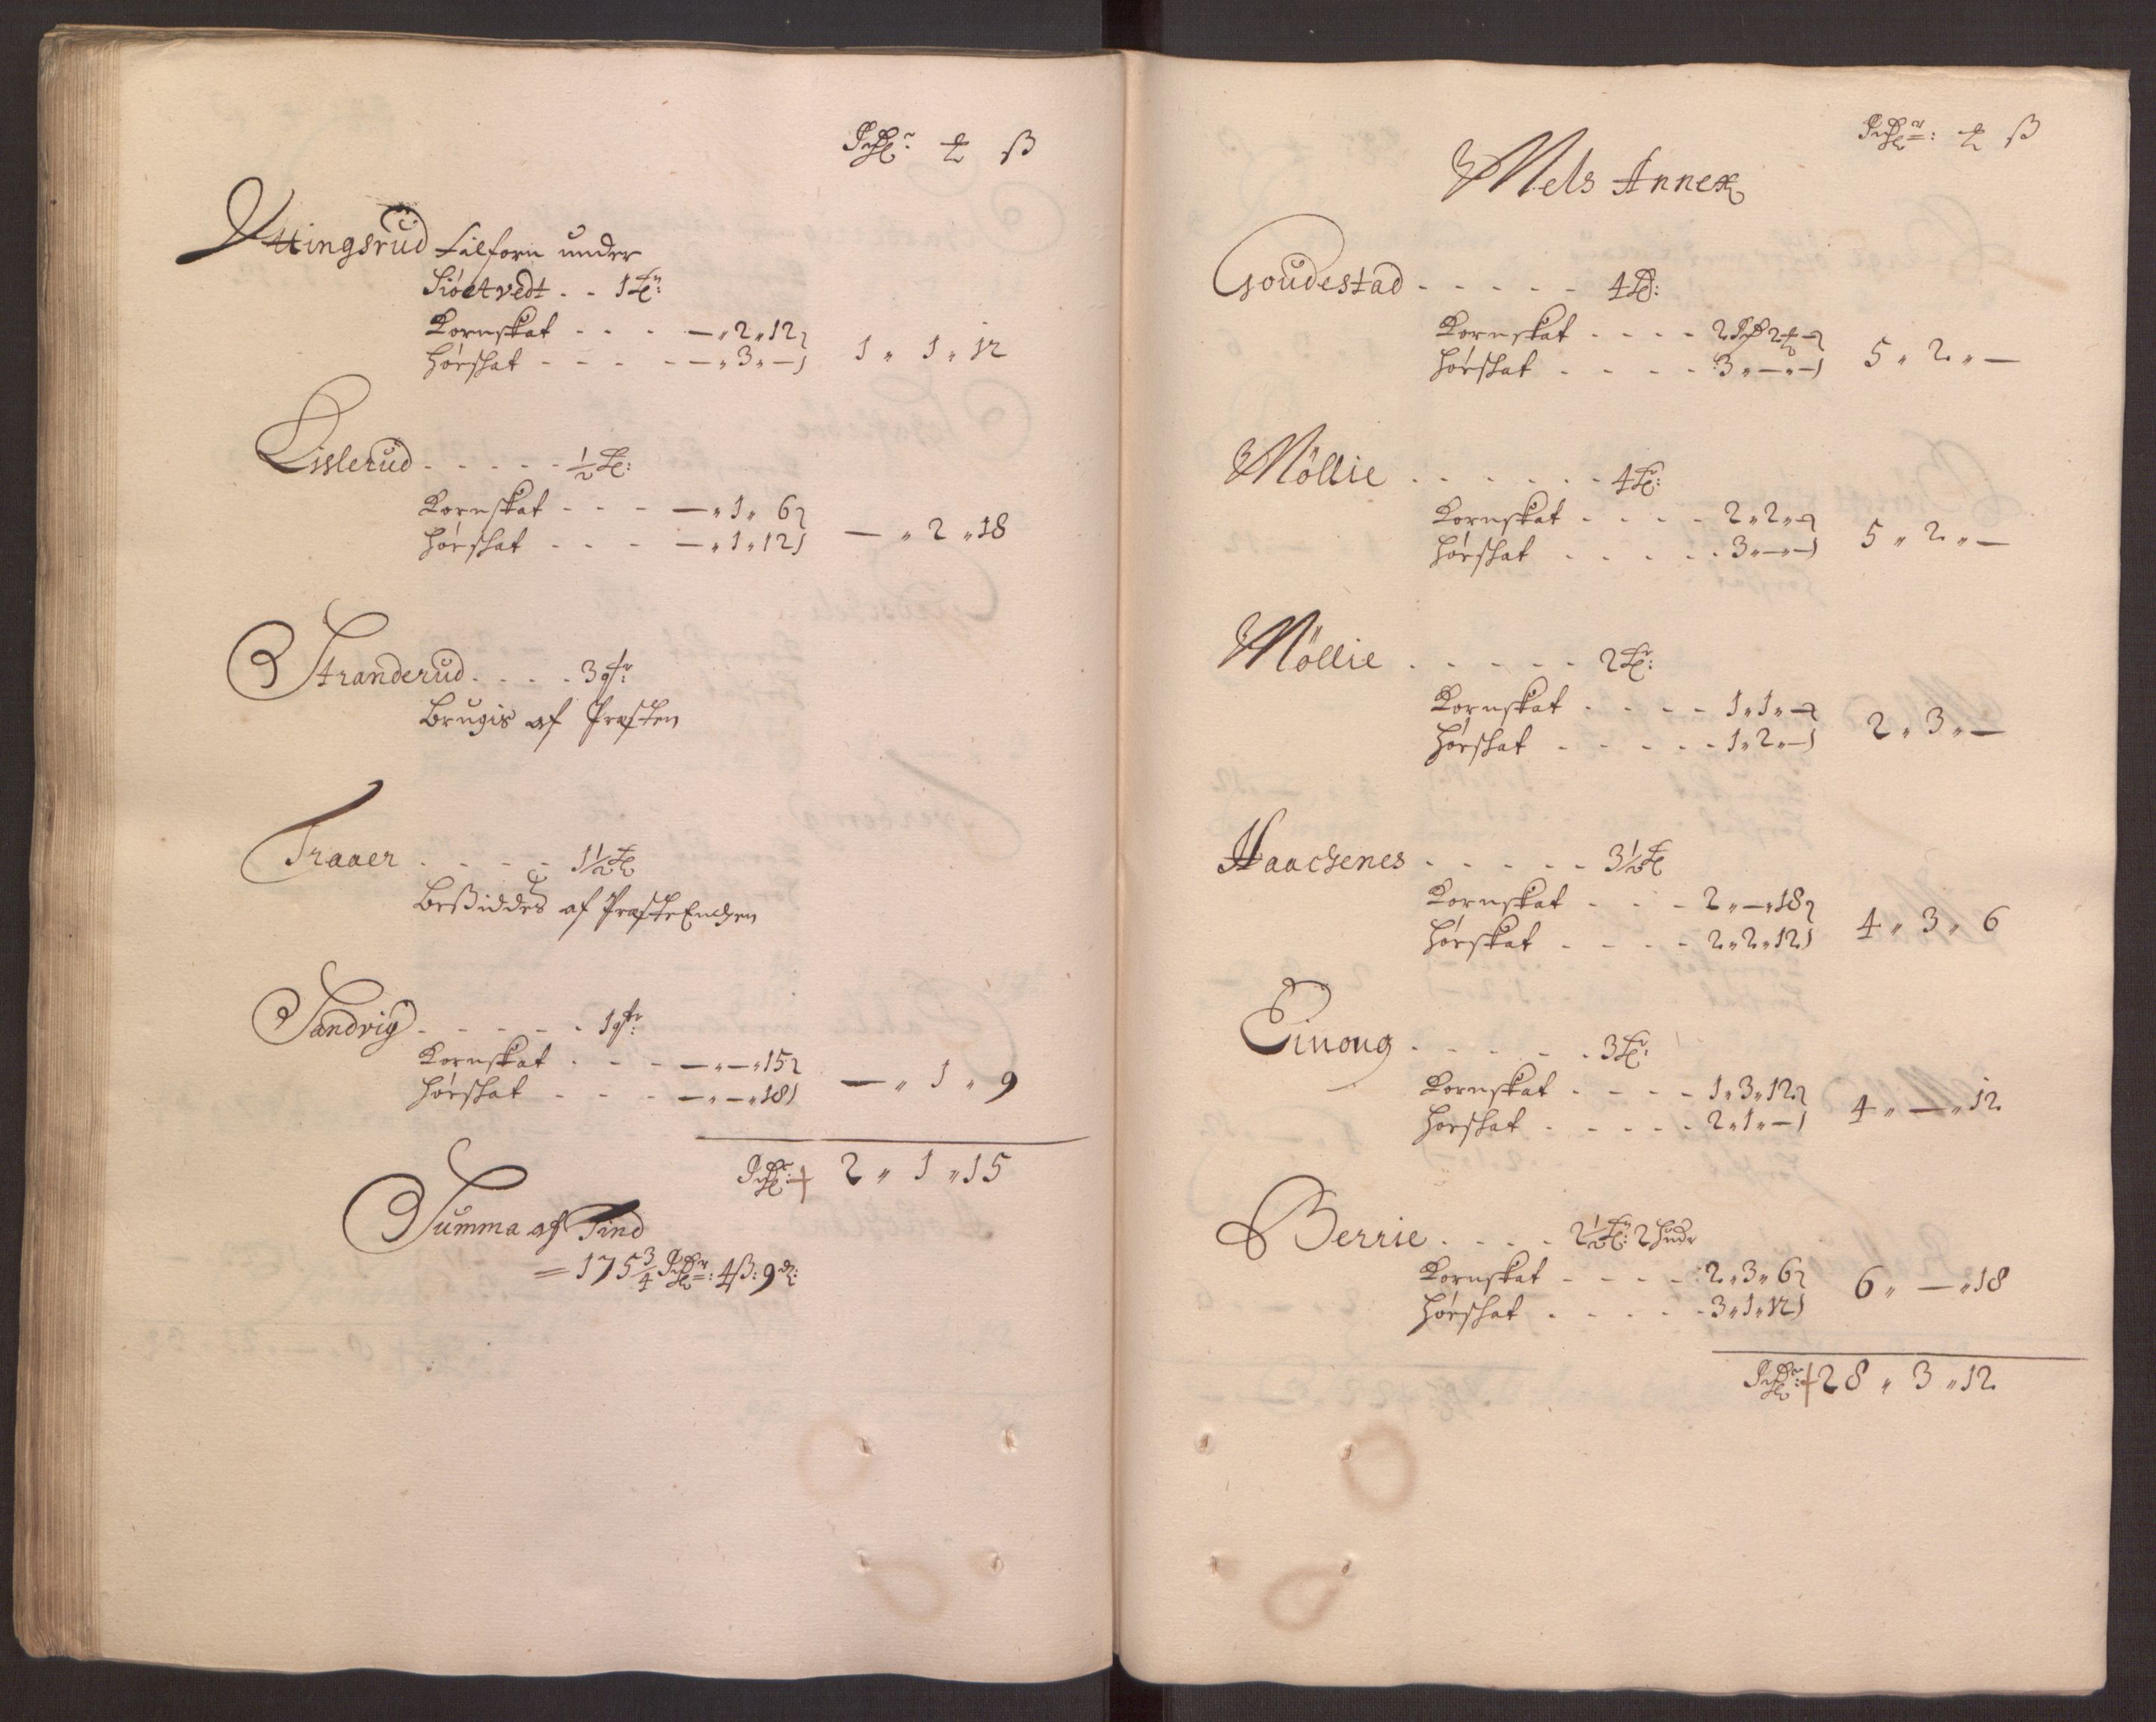 Rdr: ort ß
Vttingsrud tilforn under
Siöetvedt . . 1 Tr:
Kornskat - - - — „ 2 „ 12
Hörskat - - - — „ 3 „ — 1 „ 1 „ 12
Lislerud - - - - - ½ T:
Kornskat - - - — „ 1 „ 6
Hörskat - - - — „ 1 „ 12 — „ 2 „ 18
Stranderud . . . . 3 qtr:
Brugis af Præsten
Traaer - - - - 1½ T
Beßiddes af PræsteEnchen
Sandvig - - - - - 1 qtr:
Kornskat - - - — „ — „ 15
Hörskat - - - — „ — „ 18 — „ 1 „ 9
Rdr: 2 „ 1 „ 15
Summa af Tind
= 175¾ Rdr: 4 ß: 9 d:
Rdr: ort ß
Mels Annex
Goudestad - - - - - 4 T:
Kornskat - - - - 2 Rd 2 ort —
Hörskat - - - - 3 „ — „ — 5 „ 2 „ —
Möllie - - - - - - 4 T:
Kornskat - - - - 2 „ 2 „ —
Hörskat - - - - - 3 „ — „ — 5 „ 2 „ —
Möllie - - - - - 2 T:
Kornskat - - - - 1 „ 1 „ —
Hörskat - - - - - 1 „ 2 „ — 2 „ 3 „ —
Haachenes - - - - - 3½ T
Kornskat - - - 2 „ — „ 18
Hörskat - - - - 2 „ 2 „ 12 4 „ 3 „ 6
Einong - - - - - 3 T:
Kornskat - - - - 1 „ 3 „ 12
Hörskat - - - - - 2 „ 1 „ — 4 „ — „ 12
Berrie - - - - 2½ T: 2 hudr
Kornskat - - - - 2 „ 3 „ 6
Hörskat - - - - - 3 „ 1 „ 12 6 „ — „ 18
Rdr: 28 „ 3 „ 12